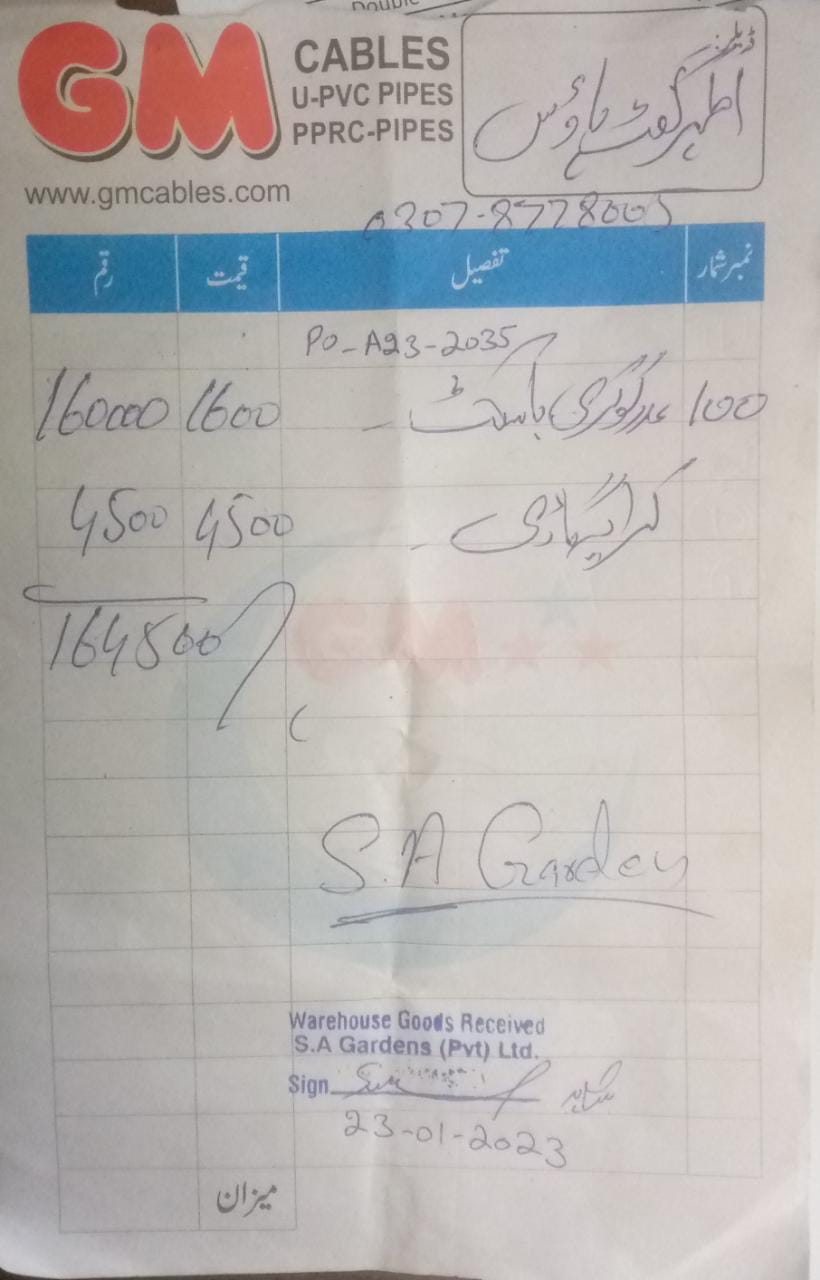 Double
GM
CABLES
U-PVC PIPES
PPRC-PIPES
www.gmcables.com
ڈیلرز
اطہر گفٹ ہاؤس
0307-8778005
نمبر شمار تفصیل قیمت رقم
PO-A23-2035
100 عدد لکڑی باسکٹ - 1600 160000
کرایہ گاڑی - 4500 4500
164500
S.A Garden
Warehouse Goods Received
S.A Gardens (Pvt) Ltd.
Sign
23-01-2023
میزان